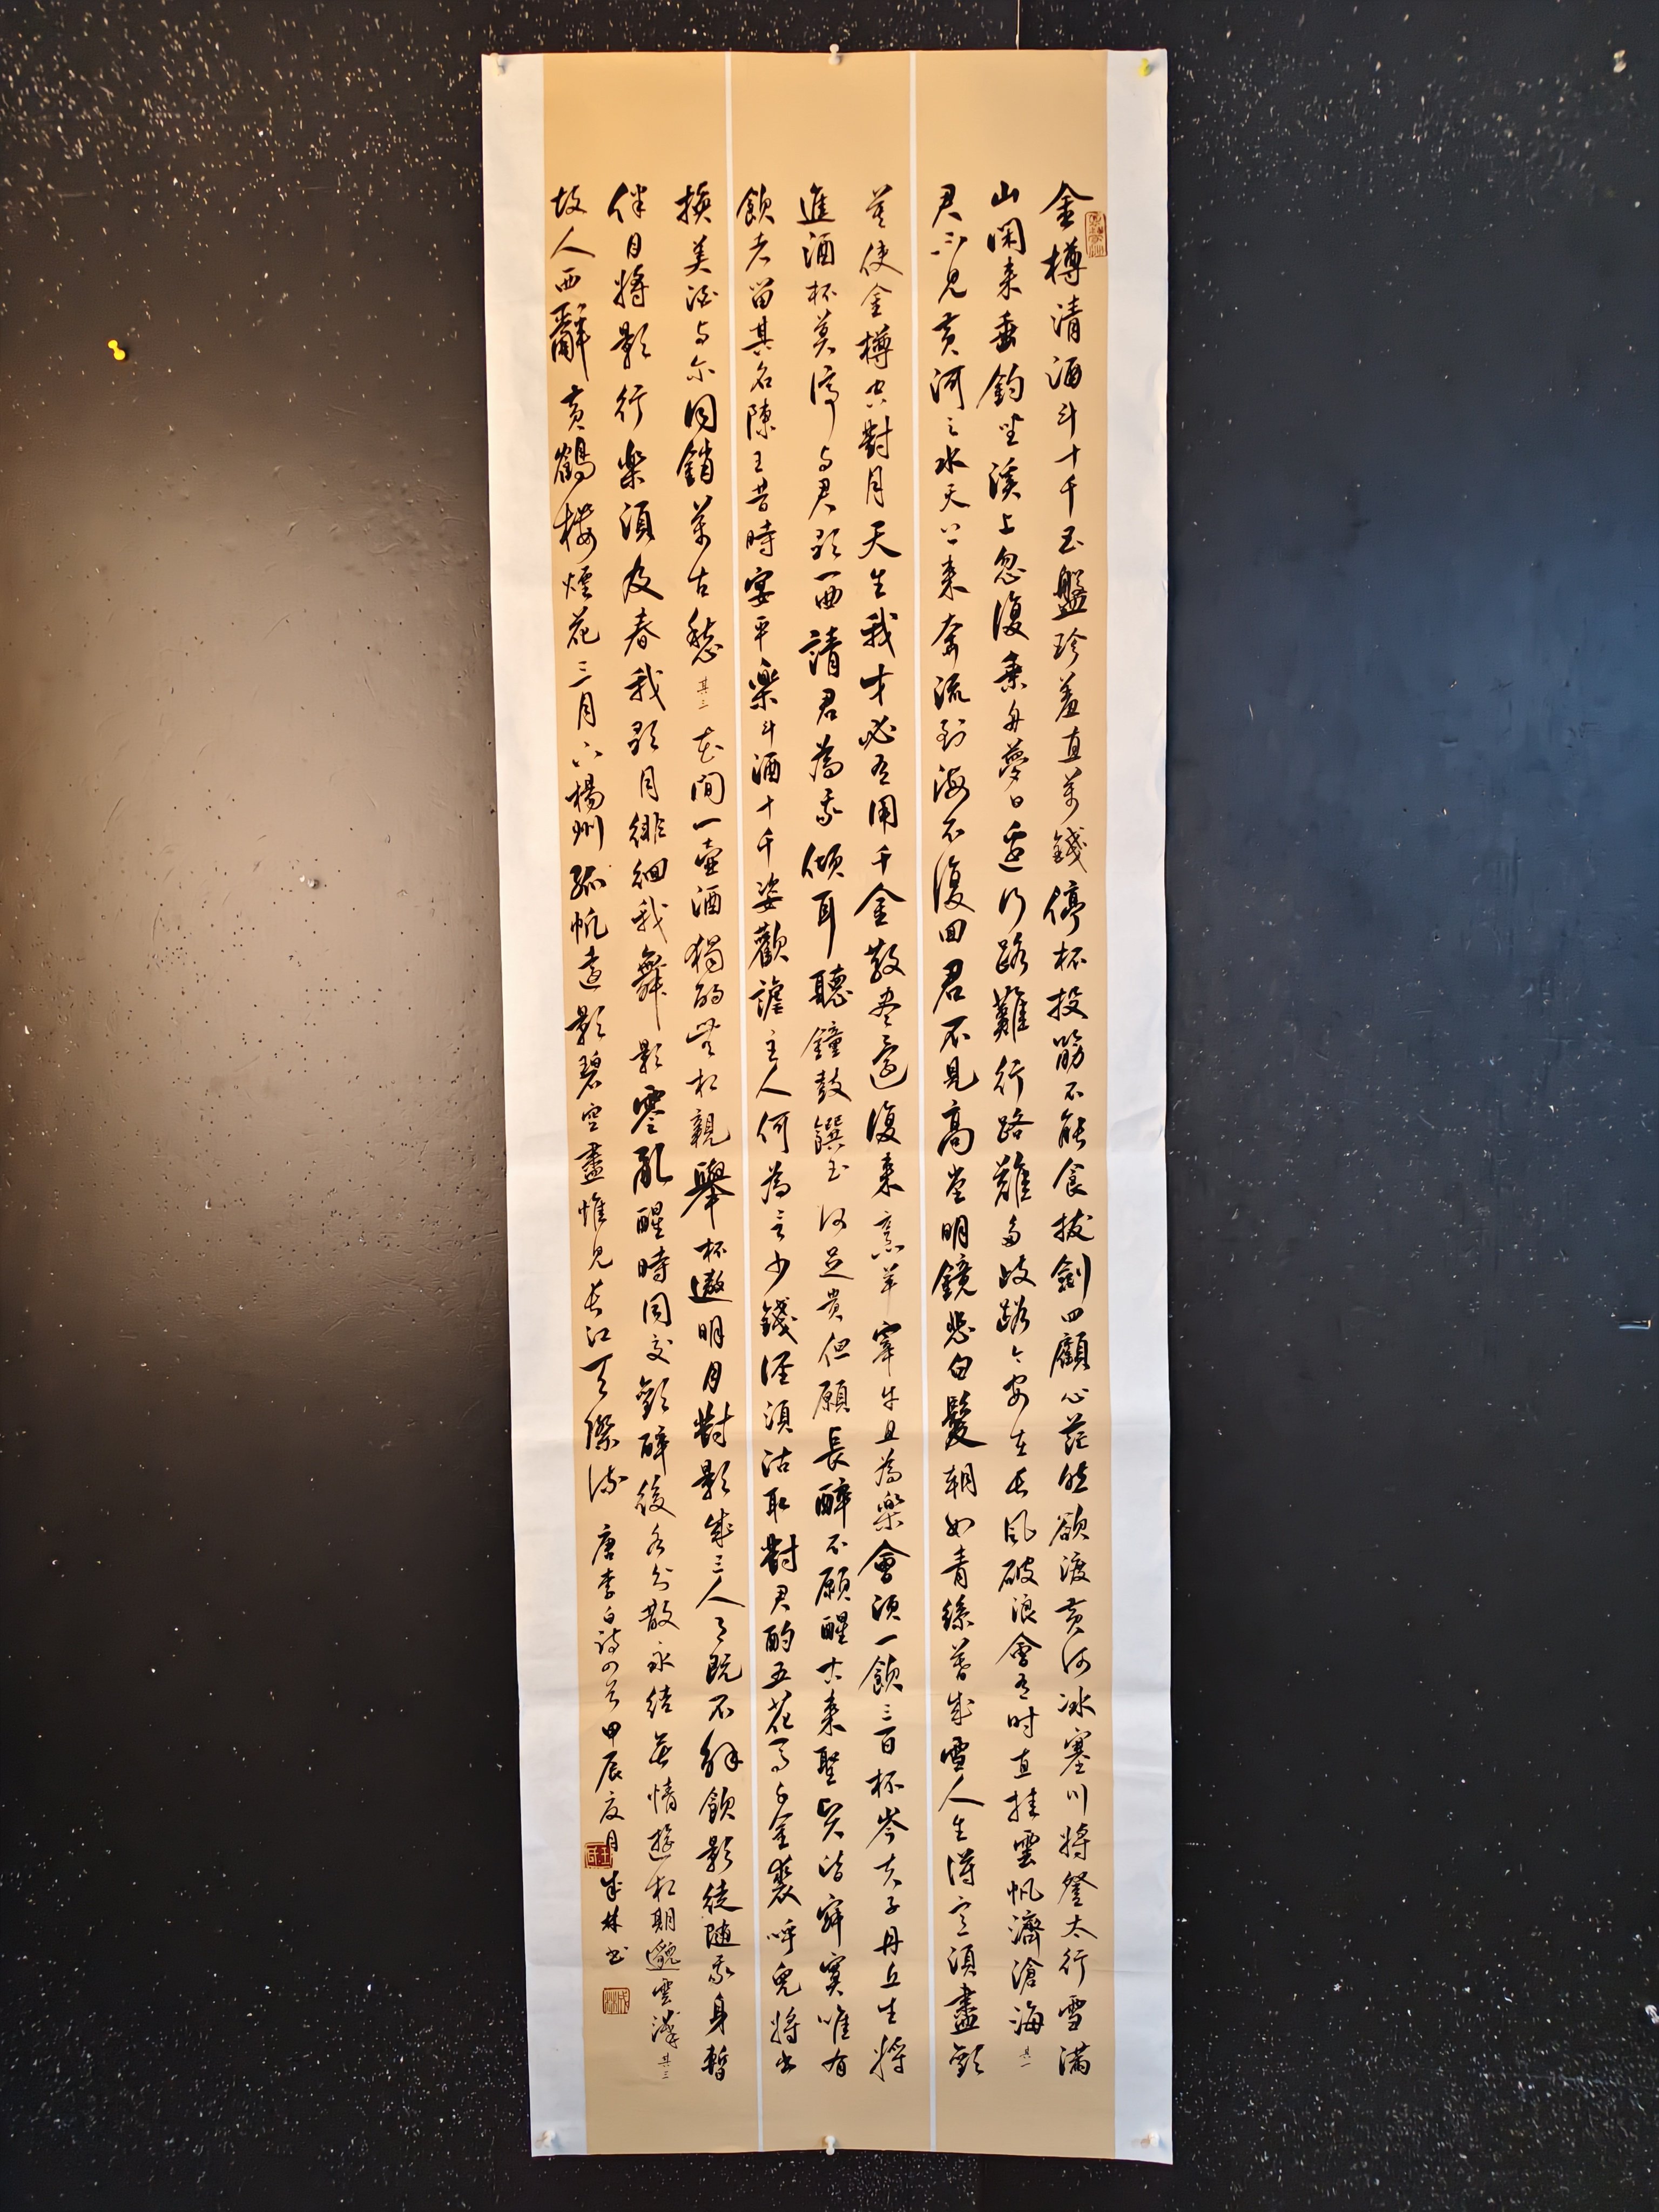 金樽清酒斗十千玉盤珍羞直萬錢停杯投筯不能食拔劍四顧心茫然欲渡黃河冰塞川將登太行雪滿
山闲来垂釣坐溪上忽復乘舟夢日邊行路難行路難多歧路今安在長風破浪會有時直挂雲帆濟滄海其一
君不見黃河之水天上来奔流到海不復回君不見高堂明鏡悲白髮朝如青絲暮成雪人生得意須盡歡
莫使金樽空對月天生我才必有用千金散盡還復来烹羊宰牛且為樂會須一飲三百杯岑夫子丹丘生將
進酒杯莫停与君歌一曲請君為我傾耳聽鐘鼓饌玉何足貴但願長醉不願醒古来聖賢皆寂寞唯有
飲者留其名陳王昔時宴平樂斗酒十千姿歡謔主人何為言少錢徑須沽取對君酌五花馬千金裘呼兒將出
換美酒与尔同銷萬古愁其二花間一壺酒獨酌無相親舉杯邀明月對影成三人月既不解飲影徒隨我身暫
伴月將影行樂須及春我歌月徘徊我舞影零亂醒時同交歡醉後各分散永結無情遊相期邈雲漢其三
故人西辭黃鶴樓煙花三月下楊州孤帆遠影碧空盡惟見長江天際流 唐李白詩四首甲辰夏月成林书